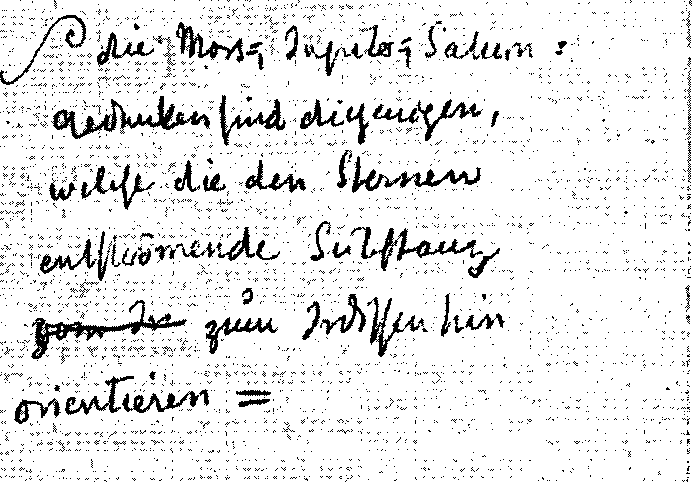 die Mars=, Jupiter=, Saturn=
gedanken sind diejenigen,
welche die den Sternen
entströmende Substanz
zum Irdischen hin
orientieren =